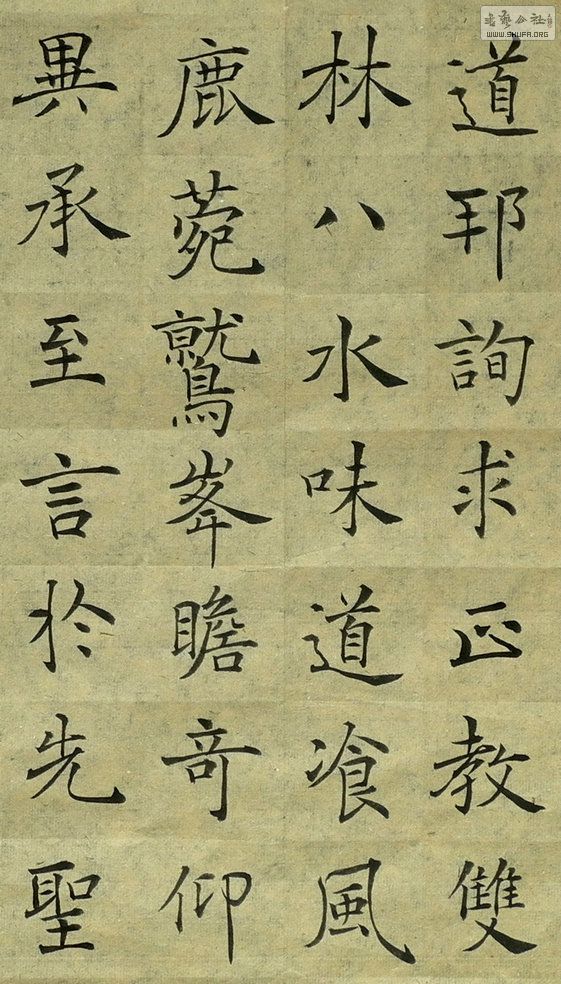 道耶詢求正教雙
林八水味道飡風
鹿菀鷲峯瞻奇仰
異承至言於先聖
書藝公社
WWW.SHUFA.ORG